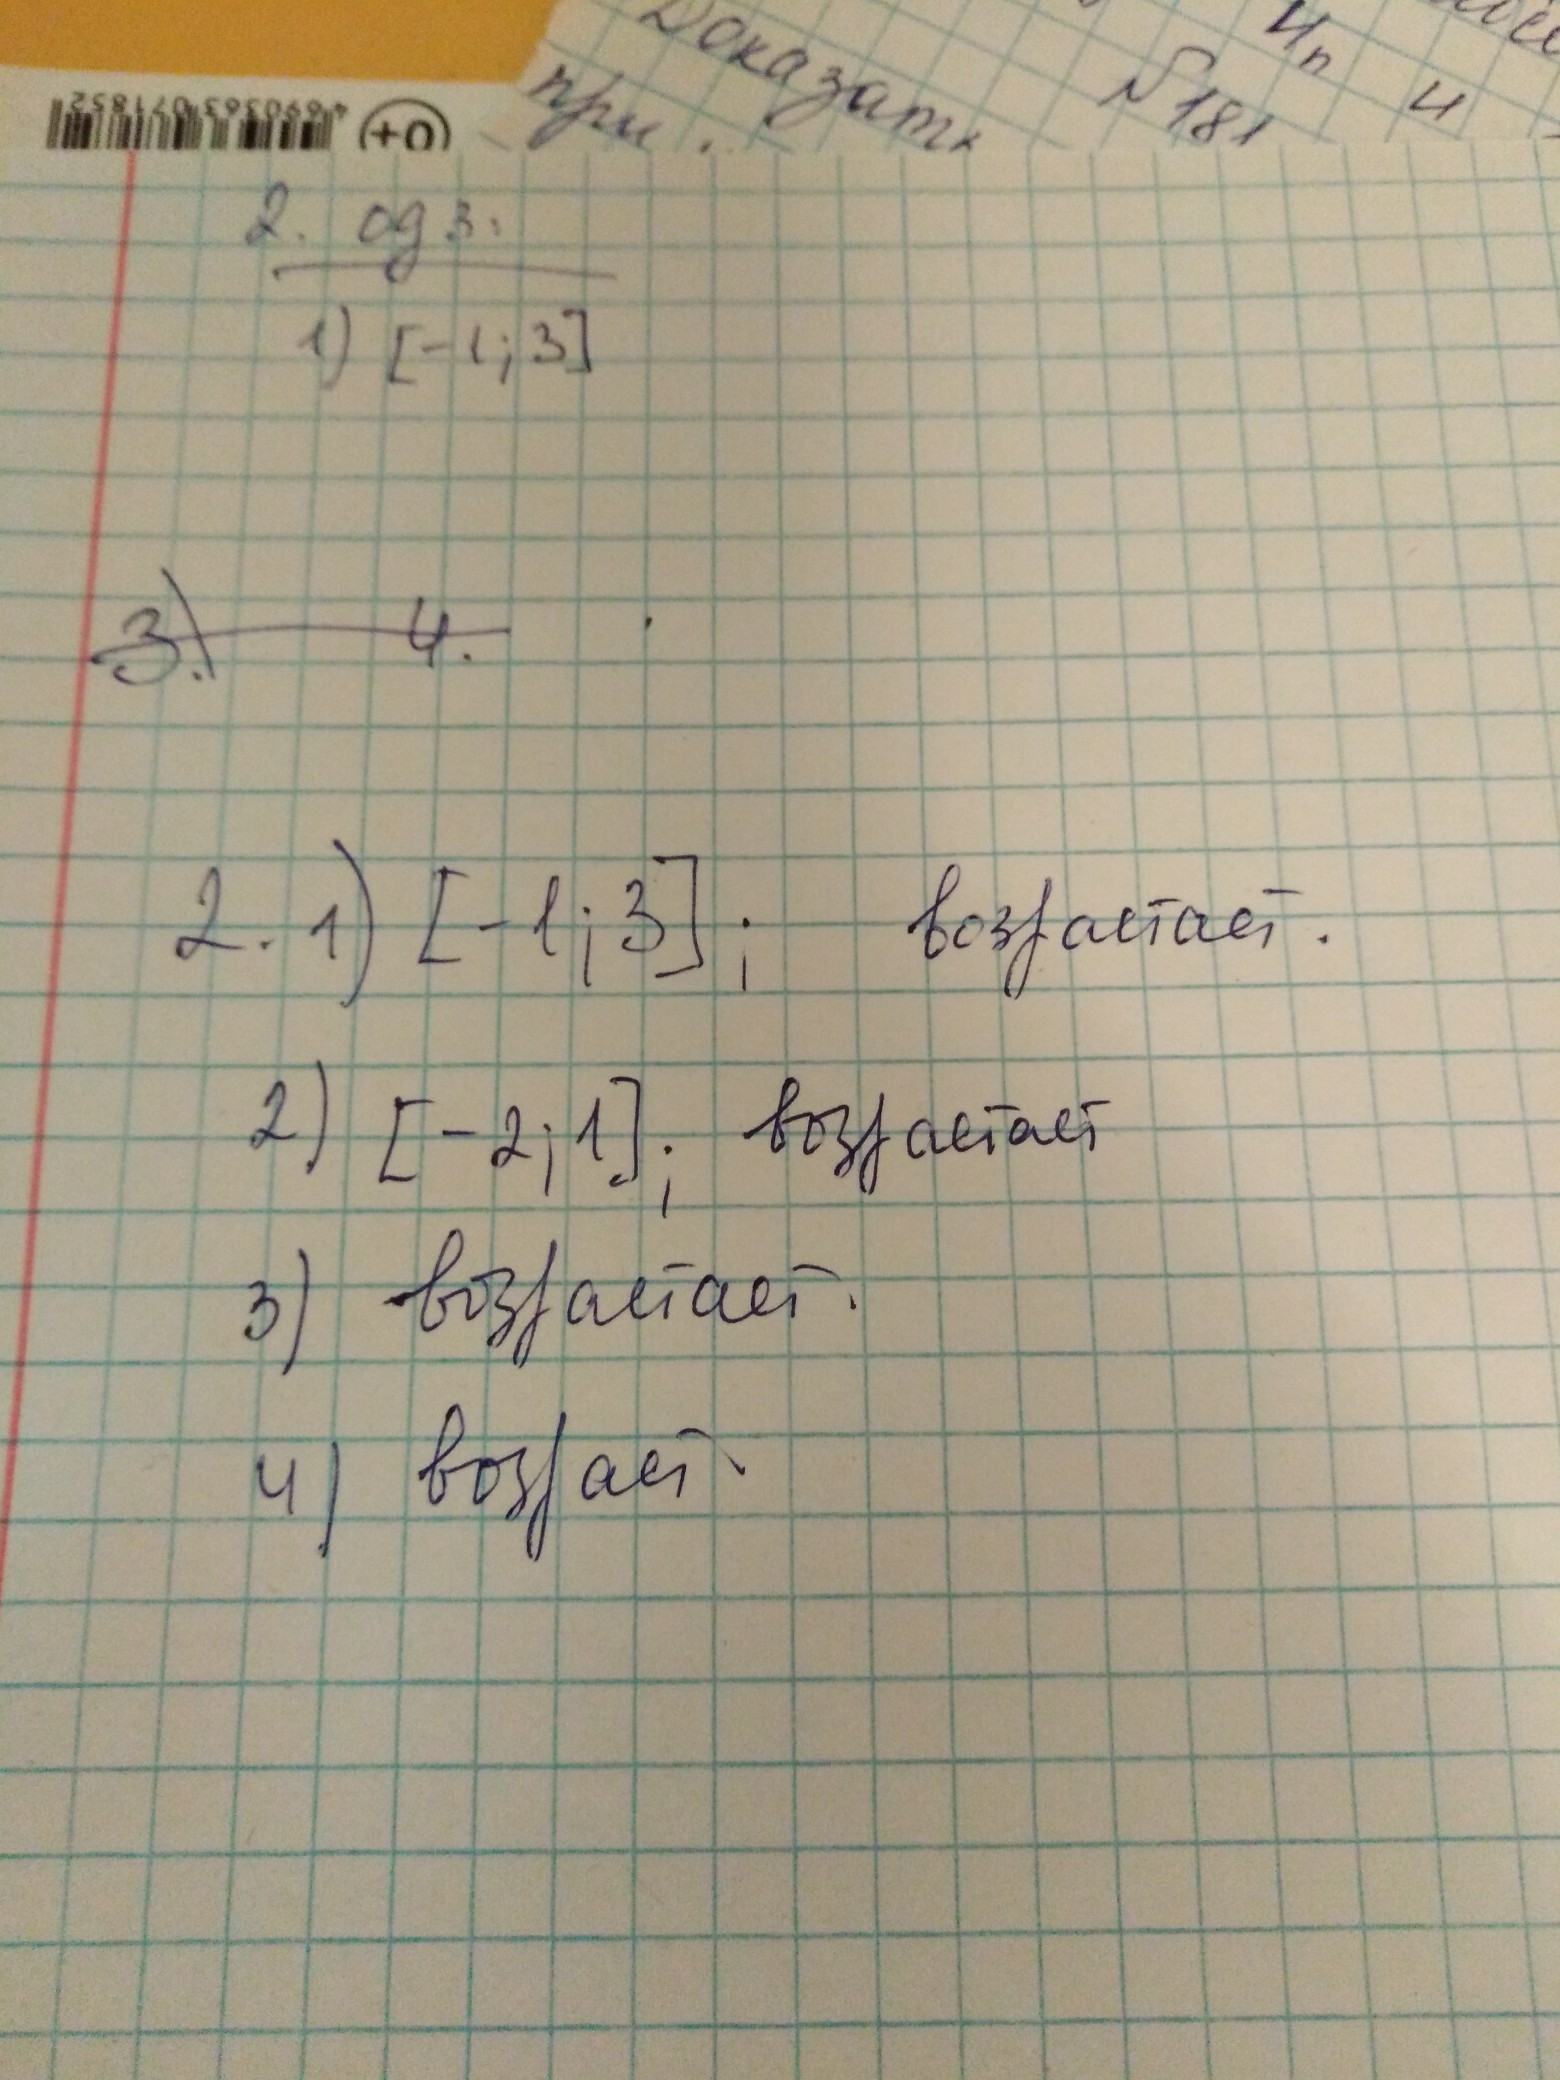 Доказать
при
Un и
№181
4690363 071852
0+
2. одз.
1) [-1; 3]
3.) 4.
2. 1) [-1; 3]; возрастает.
2) [-2; 1]; возрастает
3) возрастает.
4) возраст.